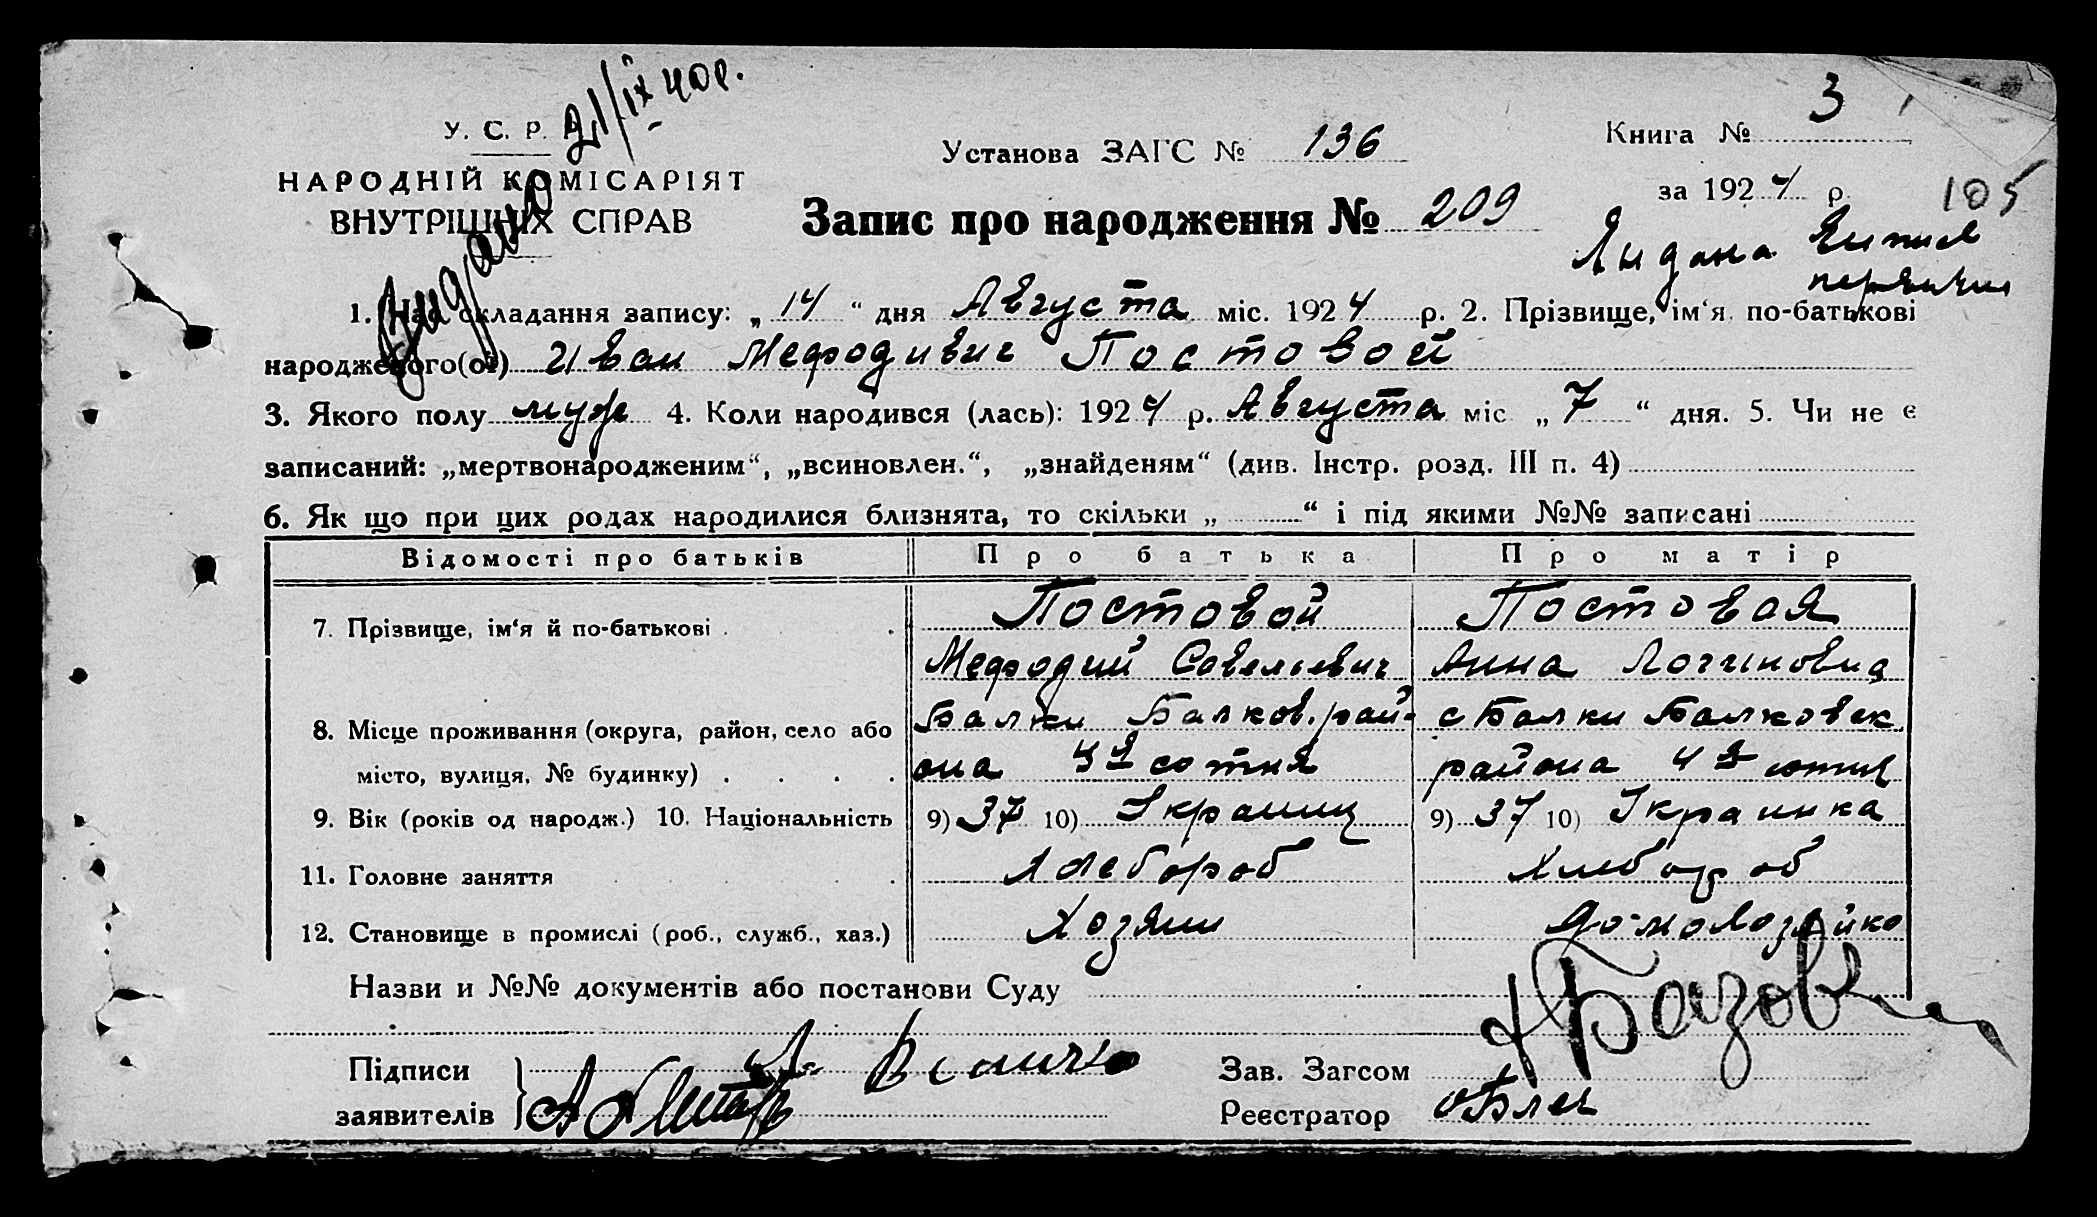 Видано 21/IX 40г.
У. С. Р.
НАРОДНІЙ КОМІСАРІЯТ
ВНУТРІШНІХ СПРАВ
Установа ЗАГС № 136
Книга № 3
за 1924 р.
105
Запис про народження № 209
1. Час складання запису: „14“ дня Августа міс. 1924 р. 2. Прізвище, ім‘я по-батькові
народженого(ої) Иван Мефодивич Постовой
3. Якого полу муж 4. Коли народився (лась): 1924 р. Августа міс „7“ дня. 5. Чи не є
записаний: „мертвонародженим“, „всиновлен.“, „знайденям“ (див. Інстр. розд. III п. 4)
6. Як що при цих родах народилися близнята, то скільки „ “ і під якими №№ записані
Відомості про батьків Про батька Про матір
7. Прізвище, ім‘я й по-батькові Постовой Постовая
Мефодий Савельевич Анна Логиновна
8. Місце проживання (округа, район, село або Балки Балков. рай- с Балки Балковск
місто, вулиця, № будинку) она 4я сотня района 4я сотня
9. Вік (років од народж.) 10. Національність 9) 37 10) Украинц 9) 37 10) Украинка
11. Головне заняття Хлебороб Хлебороб
12. Становище в промислі (роб., служб., хаз.) Хозяин Домохозяйка
Назви и №№ документів або постанови Суду
Підписи
заявителів
Зав. Загсом
Реєстратор